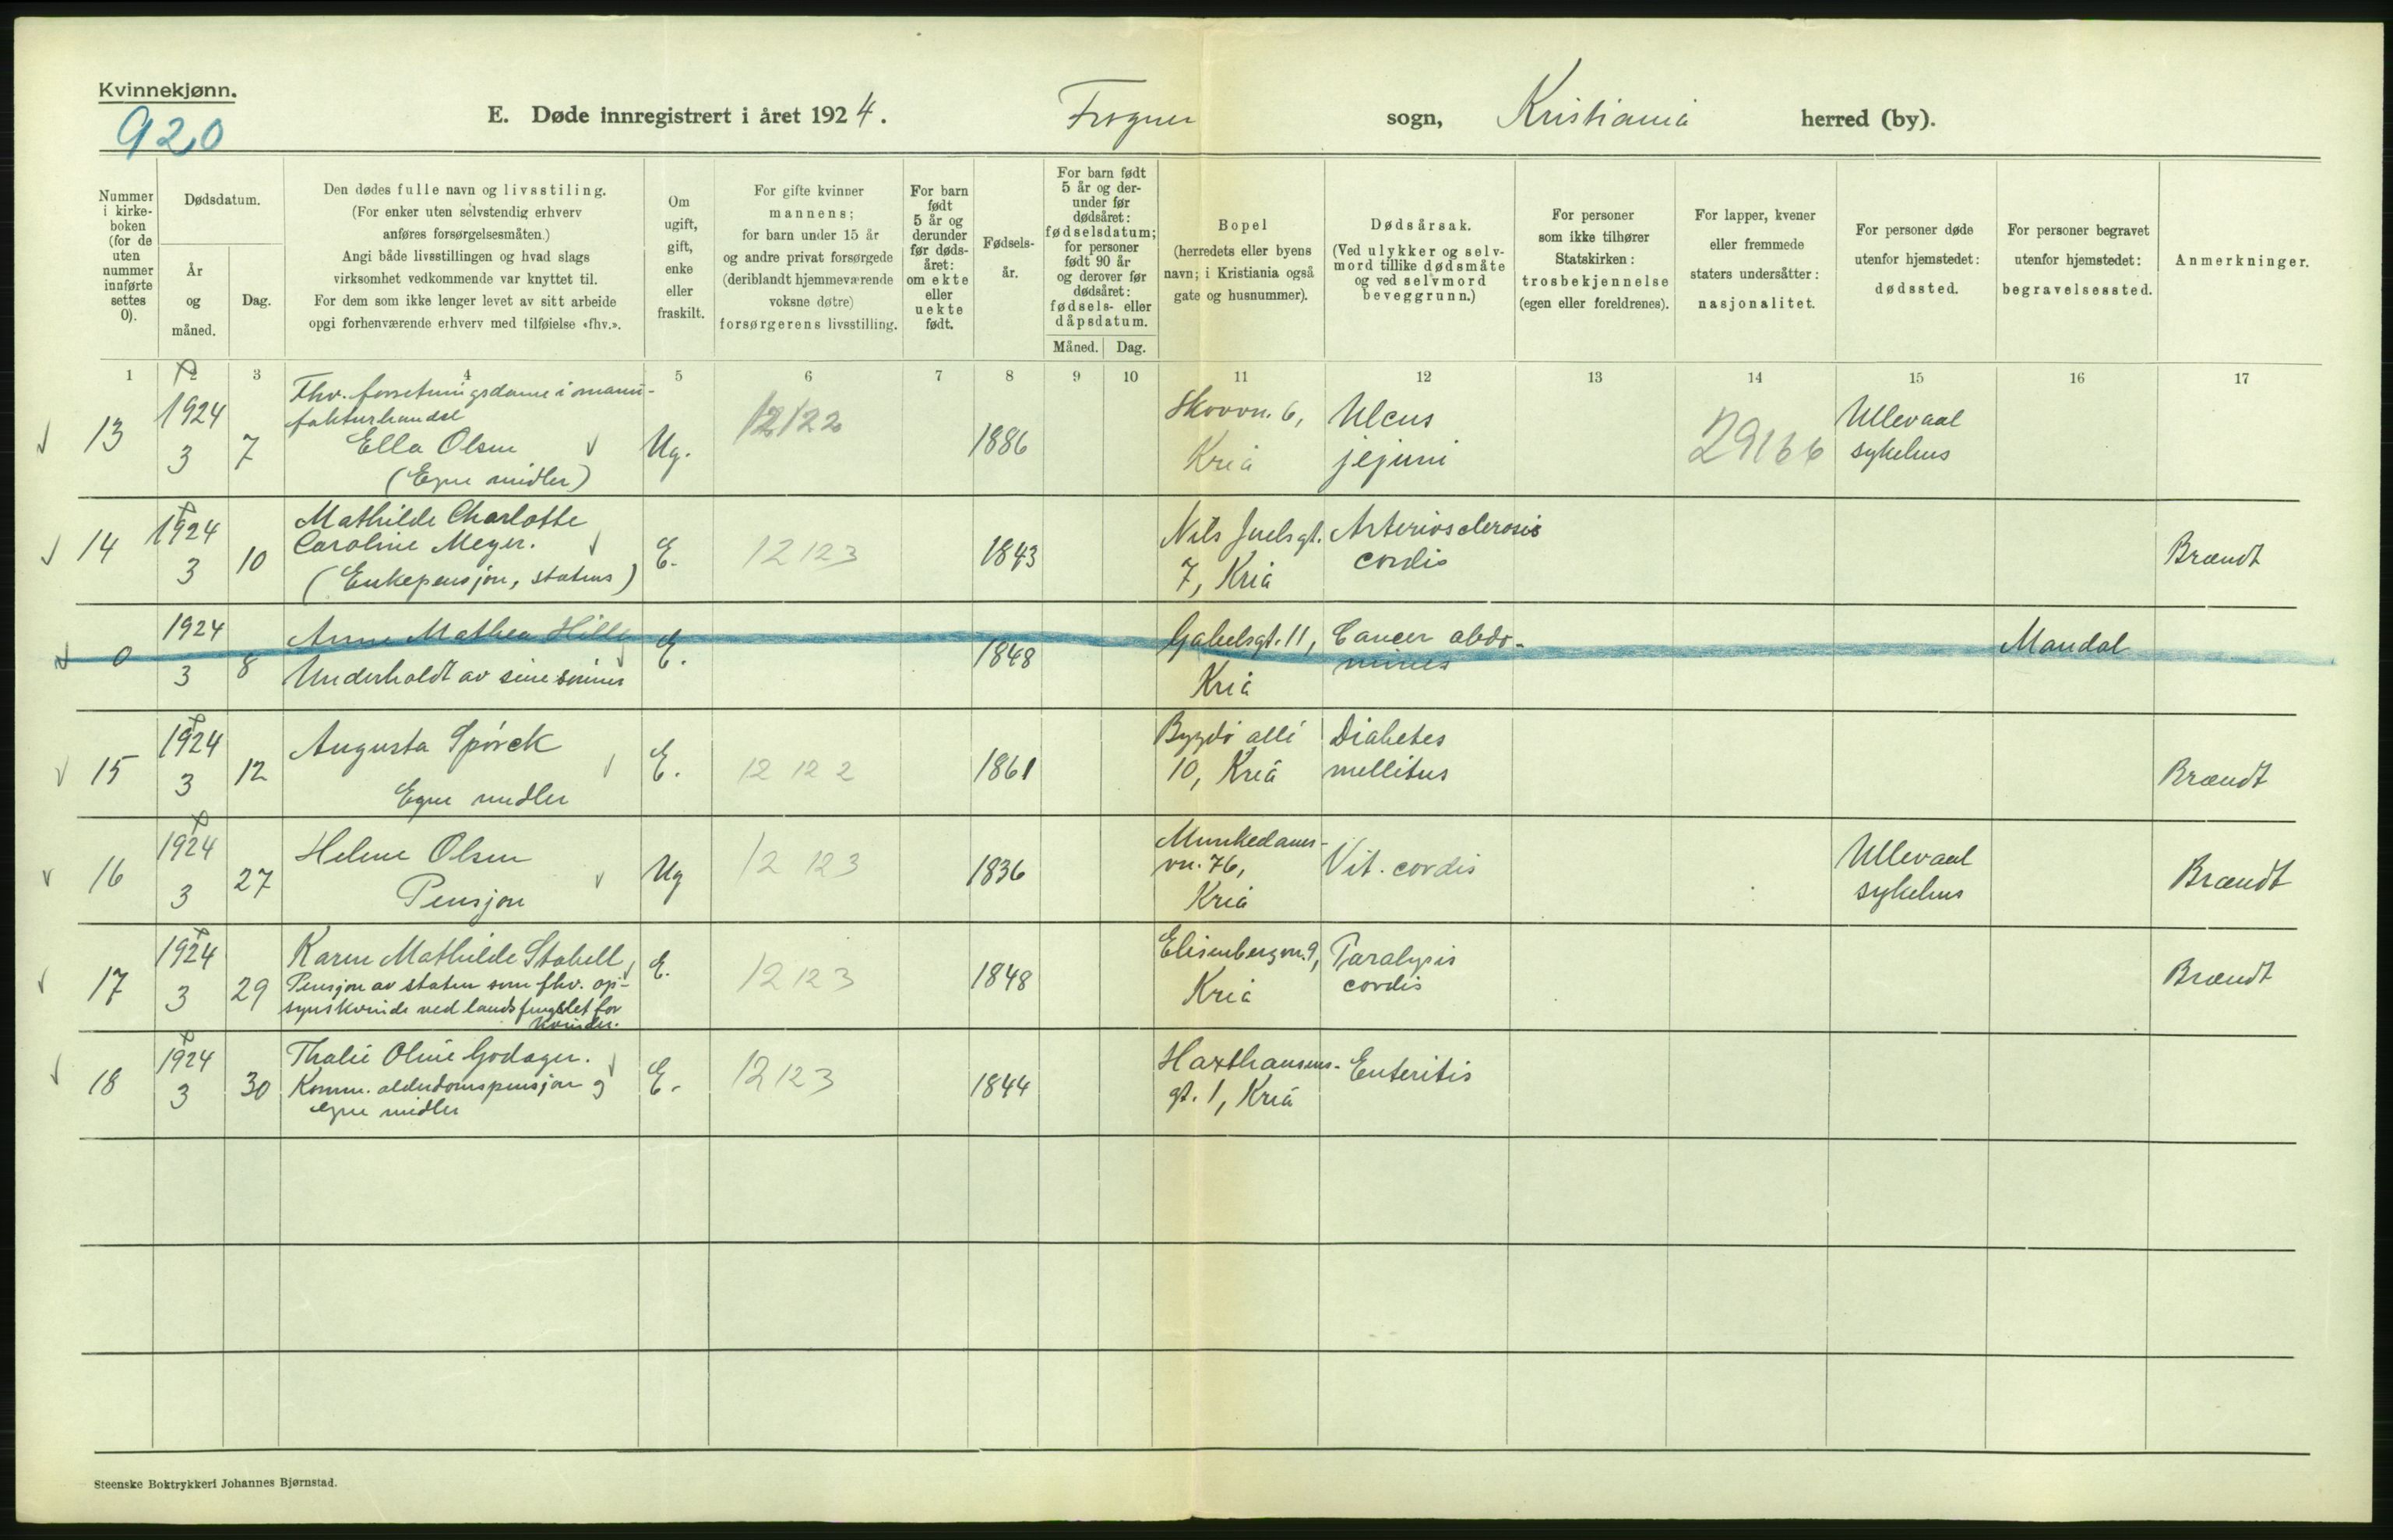 Kvinnekjønn.
920
E. Døde innregistrert i året 1924. Frogner sogn, Kristiania herred (by).
Nummer
i kirke-
boken
(for de
uten
nummer
innførte
settes
0).
Dødsdatum.
År
og
måned.
Dag.
Den dødes fulle navn og livsstiling.
(For enker uten selvstendig erhverv
anføres forsørgelsesmåten.)
Angi både livsstillingen og hvad slags
virksomhet vedkommende var knyttet til.
For dem som ikke lenger levet av sitt arbeide
opgi forhenværende erhverv med tilføielse «fhv.».
Om
ugift,
gift,
enke
eller
fraskilt.
For gifte kvinner
mannens;
for barn under 15 år
og andre privat forsørgede
(deriblandt hjemmeværende
voksne døtre)
forsørgerens livsstilling.
For barn
født
5 år og
derunder
før døds-
året:
om ekte
eller
uekte
født.
Fødsels-
år.
For barn født
5 år og der-
under før
dødsåret:
fødselsdatum;
for personer
født 90 år
og derover før
dødsåret:
fødsels- eller
dåpsdatum.
Måned. Dag.
Bopel
(herredets eller byens
navn; i Kristiania også
gate og husnummer).
Dødsårsak.
(Ved ulykker og selv-
mord tillike dødsmåte
og ved selvmord
beveggrunn.)
For personer
som ikke tilhører
Statskirken:
trosbekjennelse
(egen eller foreldrenes).
For lapper, kvener
eller fremmede
staters undersåtter:
nasjonalitet.
For personer døde
utenfor hjemstedet:
dødssted.
For personer begravet
utenfor hjemstedet:
begravelsessted.
Anmerkninger.
1 2 3 4 5 6 7 8 9 10 11 12 13 14 15 16 17
13
1924
3
7
Fhv. forretningsdame i manu-
fakturhandel
Ella Olsen
(Egne midler)
Ug.
12122
1886
Skovvn. 6,
Kria
Ulcus
jejuni
29166
Ullevaal
sykehus
14
1924
3
10
Mathilde Charlotte
Caroline Meyer.
(Enkepensjon, statens)
E.
12123
1843
Nils Juels gt.
7, Kria
Arteriosclerosis
cordis
Brændt
0
1924
3
8
Anne Mathea Hille
Underholdt av sine sønner
E.
1848
Gabelsgt. 11,
Kria
Cancer abdo-
minis
Mandal
15
1924
3
12
Augusta Spørck
Egne midler
E.
12 12 2
1861
Bygdø allé
10, Kria
Diabetes
mellitus
Brændt
16
1924
3
27
Helene Olsen
Pensjon
Ug
12 123
1836
Munkedams-
vn. 76,
Kria
Vit. cordis
Ullevaal
sykehus
Brændt
17
1924
3
29
Karen Mathilde Stabell
Pensjon av staten som fhv. op-
synskvinde ved landsfængslet for
kvinder.
E.
12123
1848
Elisenbergvn. 9,
Kria
Paralysis
cordis
Brændt
18
1924
3
30
Thalie Oline Godager.
Komm. alderdomspensjon og
egne midler
E.
12123
1844
Haxthausens-
gt. 1, Kria
Enteritis
Steenske Boktrykkeri Johannes Bjørnstad.